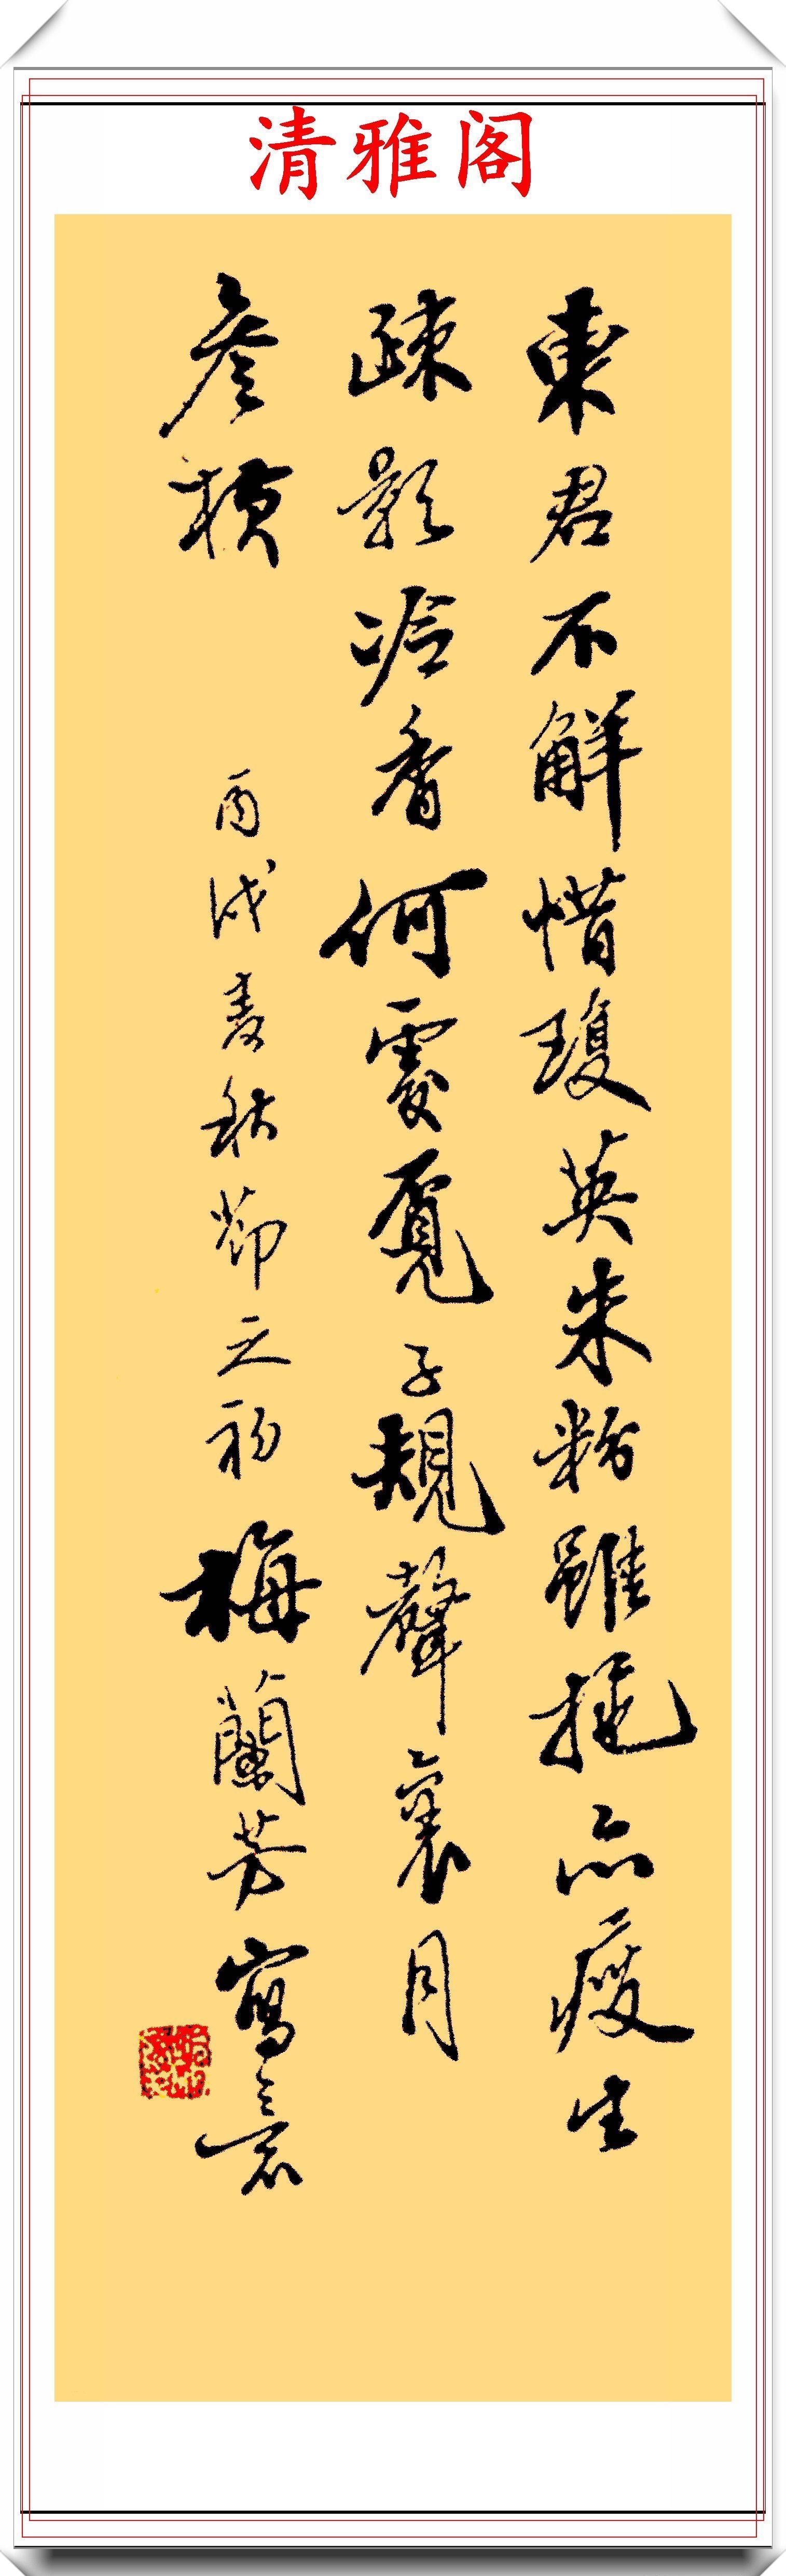 清雅阁
東君不解惜瓊英朱粉雖施亦瘦生
疎影冷香何處覓子規聲裏月
參横 丙戌麦秋節之初 梅蘭芳寫意